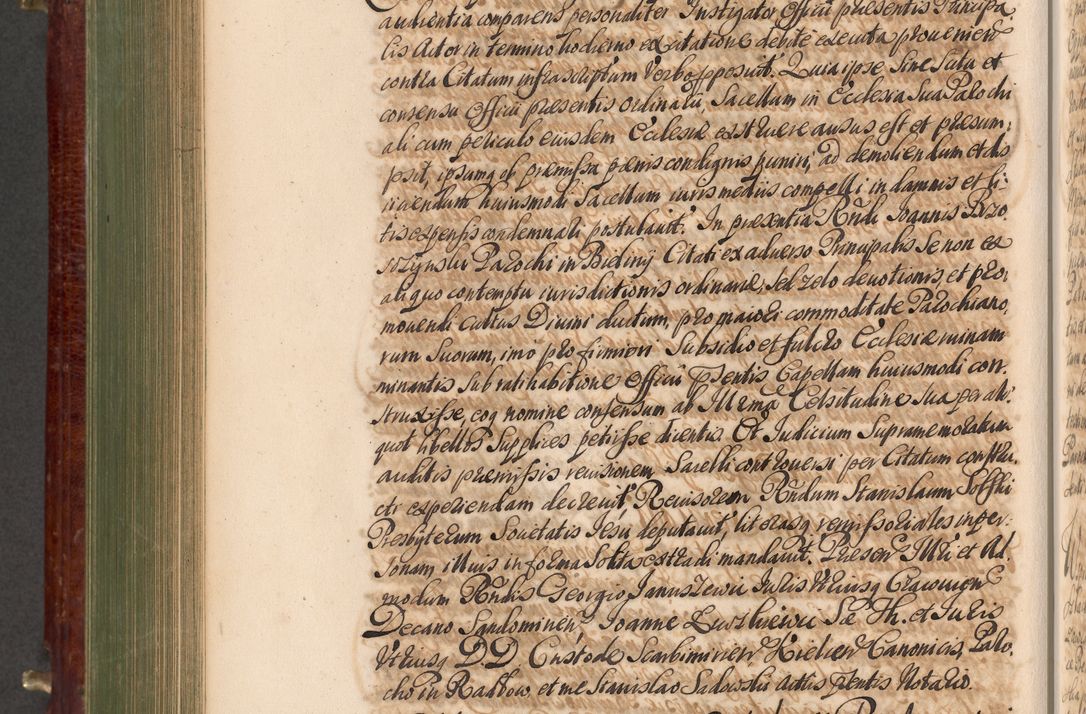 audientia comparens personaliter Instigator Officii præsentis Principa
lis Actor in termino hodierno ex citatione debite executa proveniente
contra Citatum infrascriptum Verbo proposuit. Quia ipse, sine scitu et
consensu Officii præsentis ordinarii, Sacellum in Ecclesia Sua Parochi
ali cum periculo eiusdem Ecclesiæ exstruere ausus est et præsum:
psit, ipsumq ob præmissa pænis condignis puniri, ad demoliendum et dis
iiciendum huiusmodi Sacellum iuris mediis compelli in damnis et li
tis expensis condemnari postulavit. In præsentia Rndi Joannis Brzo
Parochi in Bieliny Citati ex adverso Principalis se non ex
aliquo contemptu iurisdictionis ordinariæ, sed zelo devotionis, et pro:
movendi cultus Divini ductum, pro maiori commoditate Parochiano,
rum Suorum, imo pro firmiori Subsidio et fulcro Ecclesiæ ruinam
minantis sub ratihabitione Officii Pntis Capellam huiusmodi con
struxisse, eoq nomine consensum ab Illrma Celsitudine sua per ali
quot libellos Supplices petiisse dicentis. Et Judicium Supramemoratum
auditis præmissis revisionem Sacelli controversi per Citatum constru
cti experiendam decrevit, Revisorem Rndum Stanislaum Solski
Presbyterum Societatis Jesu deputavit, literasq remissoriales in per:
sonam illius in forma Solita extradi mandavit. Præsen Illri et Ad
modum Rndis Georgio Januszewic Juris Utriusq Cracovien
Decano Sandomirien, Joanne S Th. et Juris
Utriusq DD, Custode Scarbimirien Kielcen Canonicis, Paro,
cho in Radkow, et me Stanislao Sadowski Actis Pntis Notario.